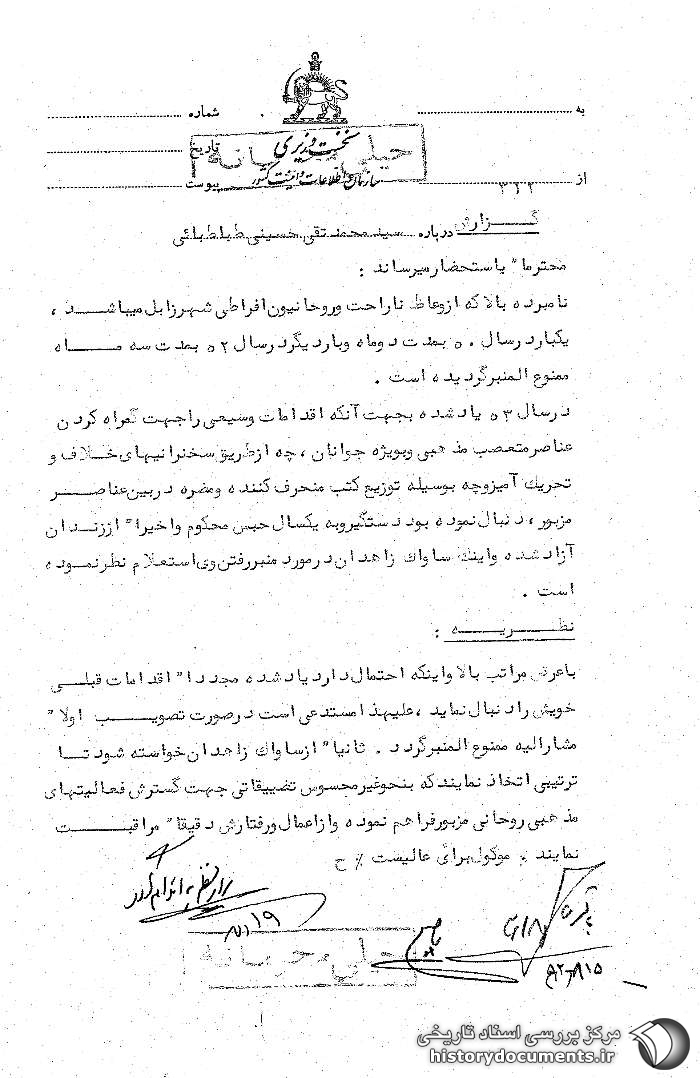 به
شماره
نخست وزیری
خیلی محرمانه
تاریخ
سازمان اطلاعات و امنیت کشور
از ۳۱۲
پیوست
گزارش درباره سید محمد تقی حسینی طباطبائی
محترما" باستحضار میرساند :
نامبرده بالا که از وعاظ ناراحت و روحانیون افراطی شهر زابل میباشد ،
یکبار در سال ۵۰ بمدت دوماه و بار دیگر در سال ۵۲ بمدت سه ماه
ممنوع المنبر گردیده است .
در سال ۵۳ یاد شده بجهت آنکه اقدامات وسیعی را جهت گمراه کردن
عناصر متعصب مذهبی و بویژه جوانان ، چه از طریق سخنرانیهای خلاف و
تحریک آمیز و چه بوسیله توزیع کتب منحرف کننده و مضره در بین عناصر
مزبور ، دنبال نموده بود دستگیر و به یکسال حبس محکوم و اخیرا" از زندان
آزاد شده و اینک ساواک زاهدان در مورد منبر رفتن وی استعلام نظر نموده
است .
نظریه :
با عرض مراتب بالا و اینکه احتمال دارد یاد شده مجددا" اقدامات قبلی
خویش را دنبال نماید ، علیهذا مستدعی است در صورت تصویب اولا"
مشارالیه ممنوع المنبر گردد . ثانیا" از ساواک زاهدان خواسته شود تا
ترتیبی اتخاذ نمایند که بنحو غیر محسوس تضییقاتی جهت گسترش فعالیتهای
مذهبی روحانی مزبور فراهم نموده و از اعمال و رفتارش دقیقا" مراقبت
نمایند . موکول برای عالیست ٪ ح
خیلی محرمانه
مرکز بررسی اسناد تاریخی
historydocuments.ir